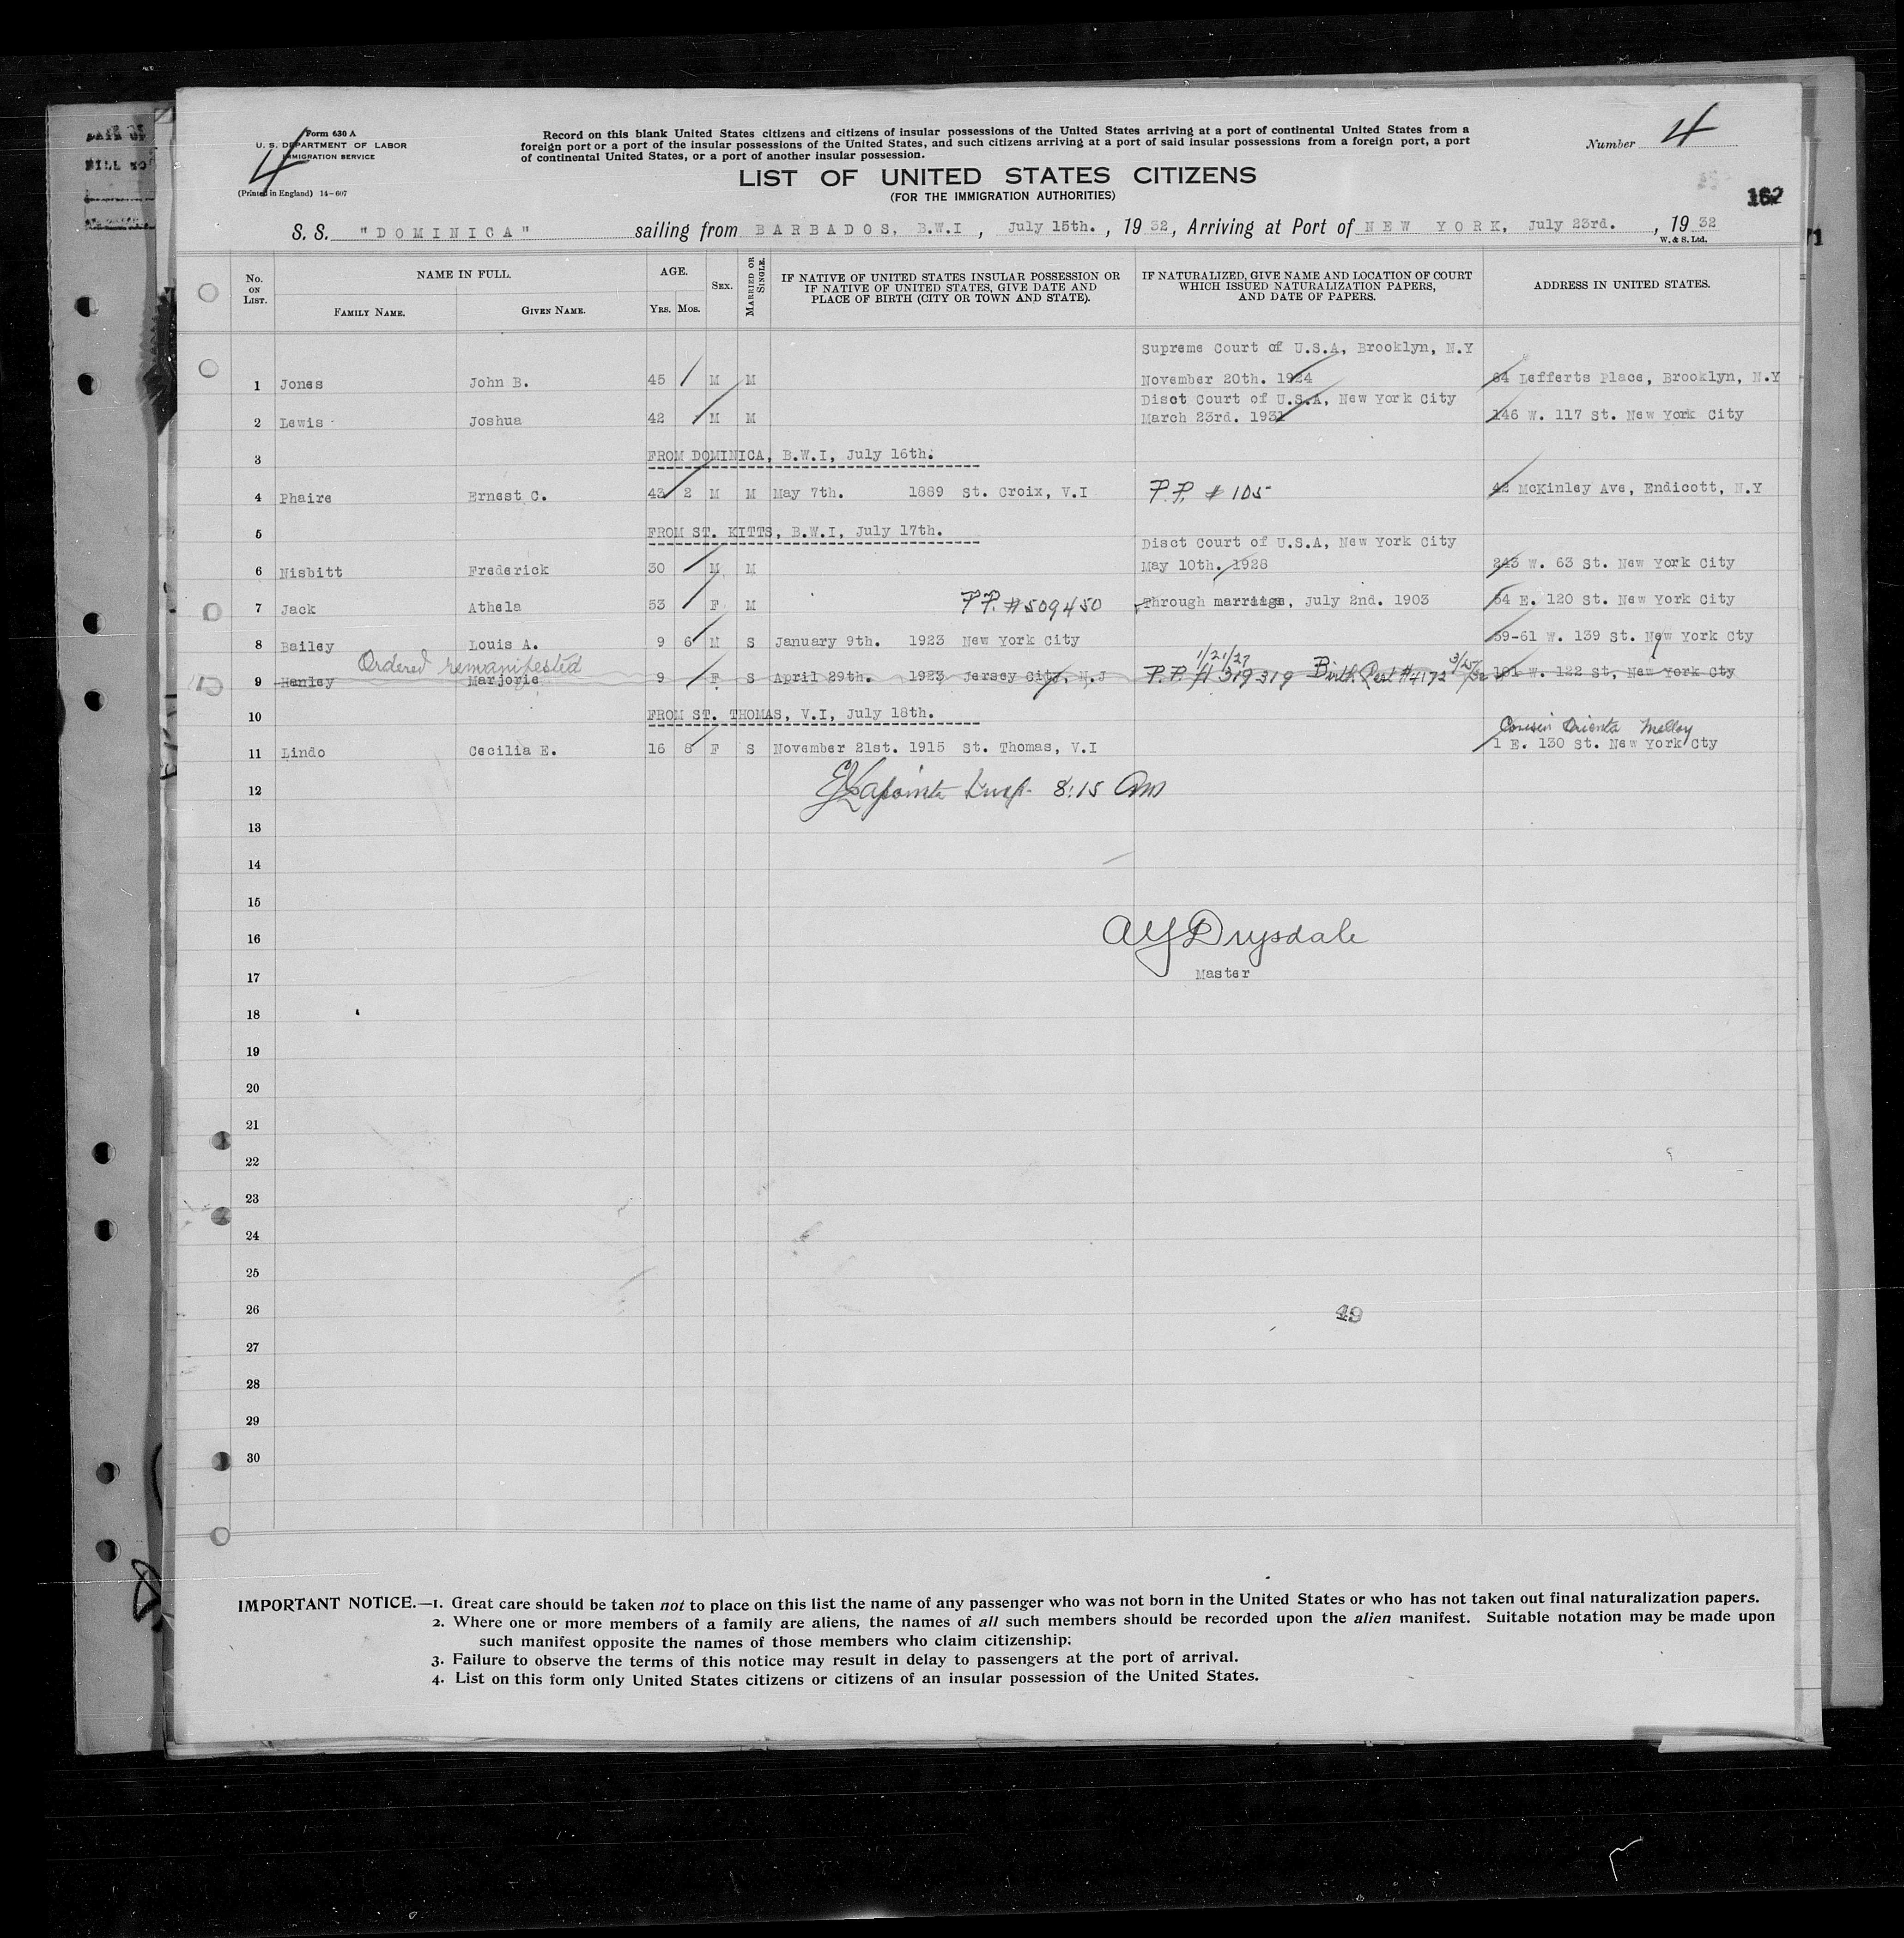 Form 630 A
U. S. DEPARTMENT OF LABOR
IMMIGRATION SERVICE
4
(Printed in England) 14-607
Record on this blank United States citizens and citizens of insular possessions of the United States arriving at a port of continental United States from a
foreign port or a port of the insular possessions of the United States, and such citizens arriving at a port of said insular possessions from a foreign port, a port
of continental United States, or a port of another insular possession.
Number 4
LIST OF UNITED STATES CITIZENS
(FOR THE IMMIGRATION AUTHORITIES)
162
S. S. "DOMINICA" sailing from BARBADOS, B.W.I, July 15th., 1932, Arriving at Port of NEW YORK, July 23rd., 1932
W. & S. Ltd.
71
No. ON LIST. NAME IN FULL. AGE. SEX. MARRIED OR SINGLE. IF NATIVE OF UNITED STATES INSULAR POSSESSION OR IF NATIVE OF UNITED STATES, GIVE DATE AND PLACE OF BIRTH (CITY OR TOWN AND STATE). IF NATURALIZED, GIVE NAME AND LOCATION OF COURT WHICH ISSUED NATURALIZATION PAPERS, AND DATE OF PAPERS. ADDRESS IN UNITED STATES.
FAMILY NAME. GIVEN NAME. YRS. MOS.
Supreme Court of U.S.A, Brooklyn, N.Y
1 Jones John B. 45 M M November 20th. 1924 64 Lefferts Place, Brooklyn, N.Y
Disct Court of U.S.A, New York City
2 Lewis Joshua 42 M M March 23rd. 1931 146 W. 117 St. New York City
3 FROM DOMINICA, B.W.I, July 16th.
4 Phaire Ernest C. 43 2 M M May 7th. 1889 St. Croix, V.I P.P. # 105 42 McKinley Ave, Endicott, N.Y
5 FROM ST. KITTS, B.W.I, July 17th.
Disct Court of U.S.A, New York City
6 Nisbitt Frederick 30 M M May 10th. 1928 243 W. 63 St. New York City
7 Jack Athela 53 F M P.P. #509450 Through marriage, July 2nd. 1903 54 E. 120 St. New York City
8 Bailey Louis A. 9 6 M S January 9th. 1923 New York City 59-61 W. 139 St. New York Cty
Ordered remanifested 1/21/27
9 Hanley Marjorie 9 F S April 29th. 1923 Jersey City, N.J P.P. # 319319 Birth Cert #4172 101 W. 122 St, New York Cty
10 FROM ST. THOMAS, V.I, July 18th.
Cousin Orienta Melloy
11 Lindo Cecilia E. 16 8 F S November 21st. 1915 St. Thomas, V.I 1 E. 130 St. New York Cty
12 Lapointe Insp. 8:15 Am
13
14
15
16 AY Drysdale
17 Master
18
19
20
21
22
23
24
25
26 49
27
28
29
30
IMPORTANT NOTICE.—1. Great care should be taken not to place on this list the name of any passenger who was not born in the United States or who has not taken out final naturalization papers.
2. Where one or more members of a family are aliens, the names of all such members should be recorded upon the alien manifest. Suitable notation may be made upon
such manifest opposite the names of those members who claim citizenship;
3. Failure to observe the terms of this notice may result in delay to passengers at the port of arrival.
4. List on this form only United States citizens or citizens of an insular possession of the United States.